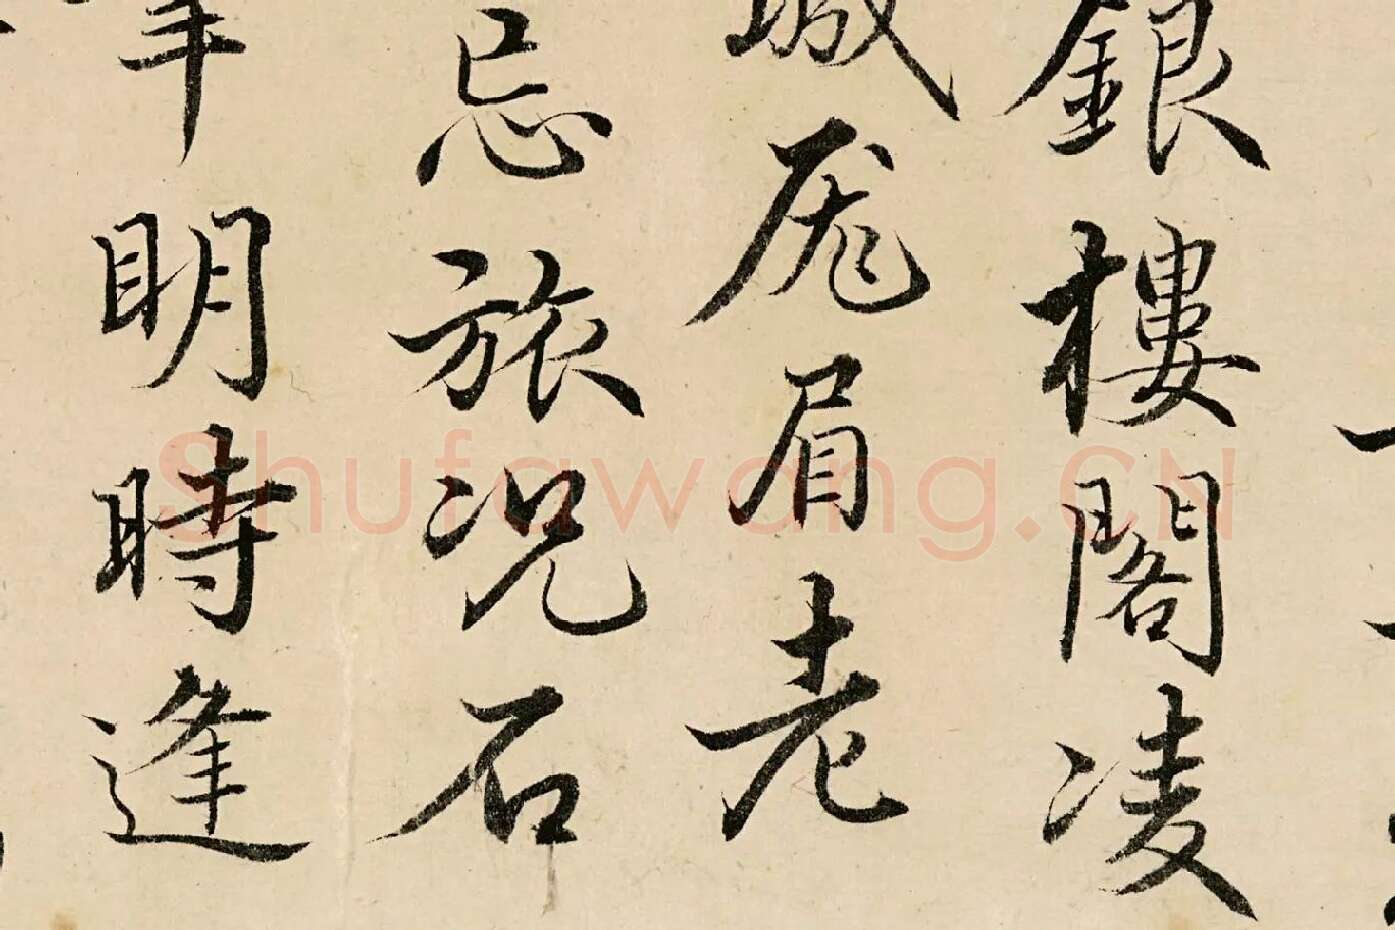 銀樓閣凌
厖眉老
忌旅況石
明時逢
Shufawang.CN